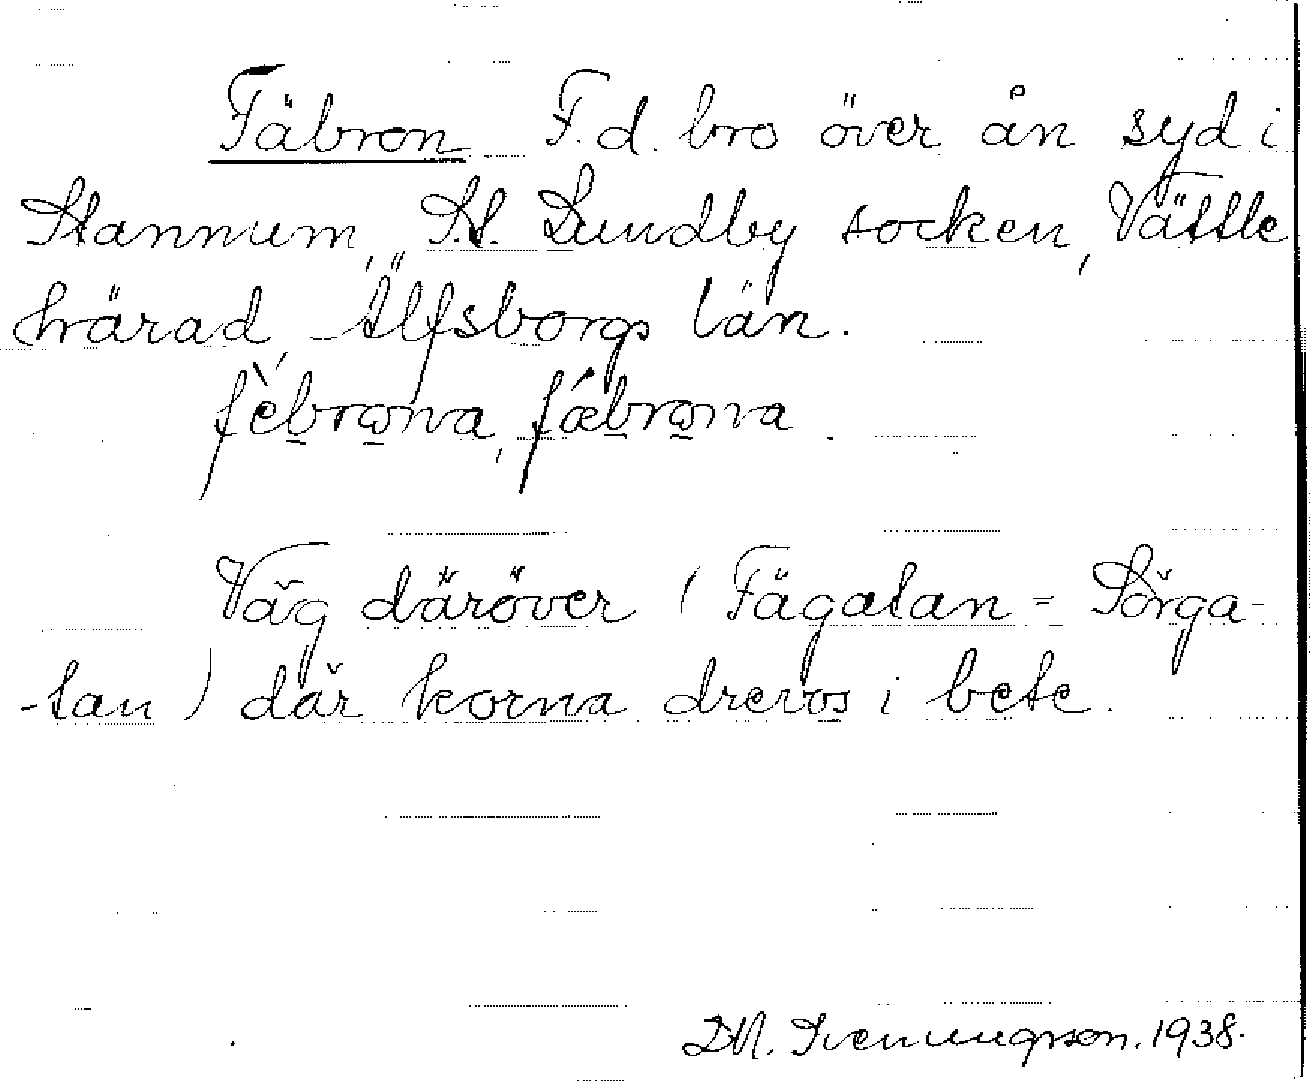 Fäbron F.d. bro över ån syd i
Stannum, St. Lundby socken, Vättle
härad, Älfsborgs län.
fèbrωna, fæ̀brωna.
Väg däröver (Fägatan = Sörga-
-tan) där korna drevos i bete.
D.N. Svenungsson. 1938.